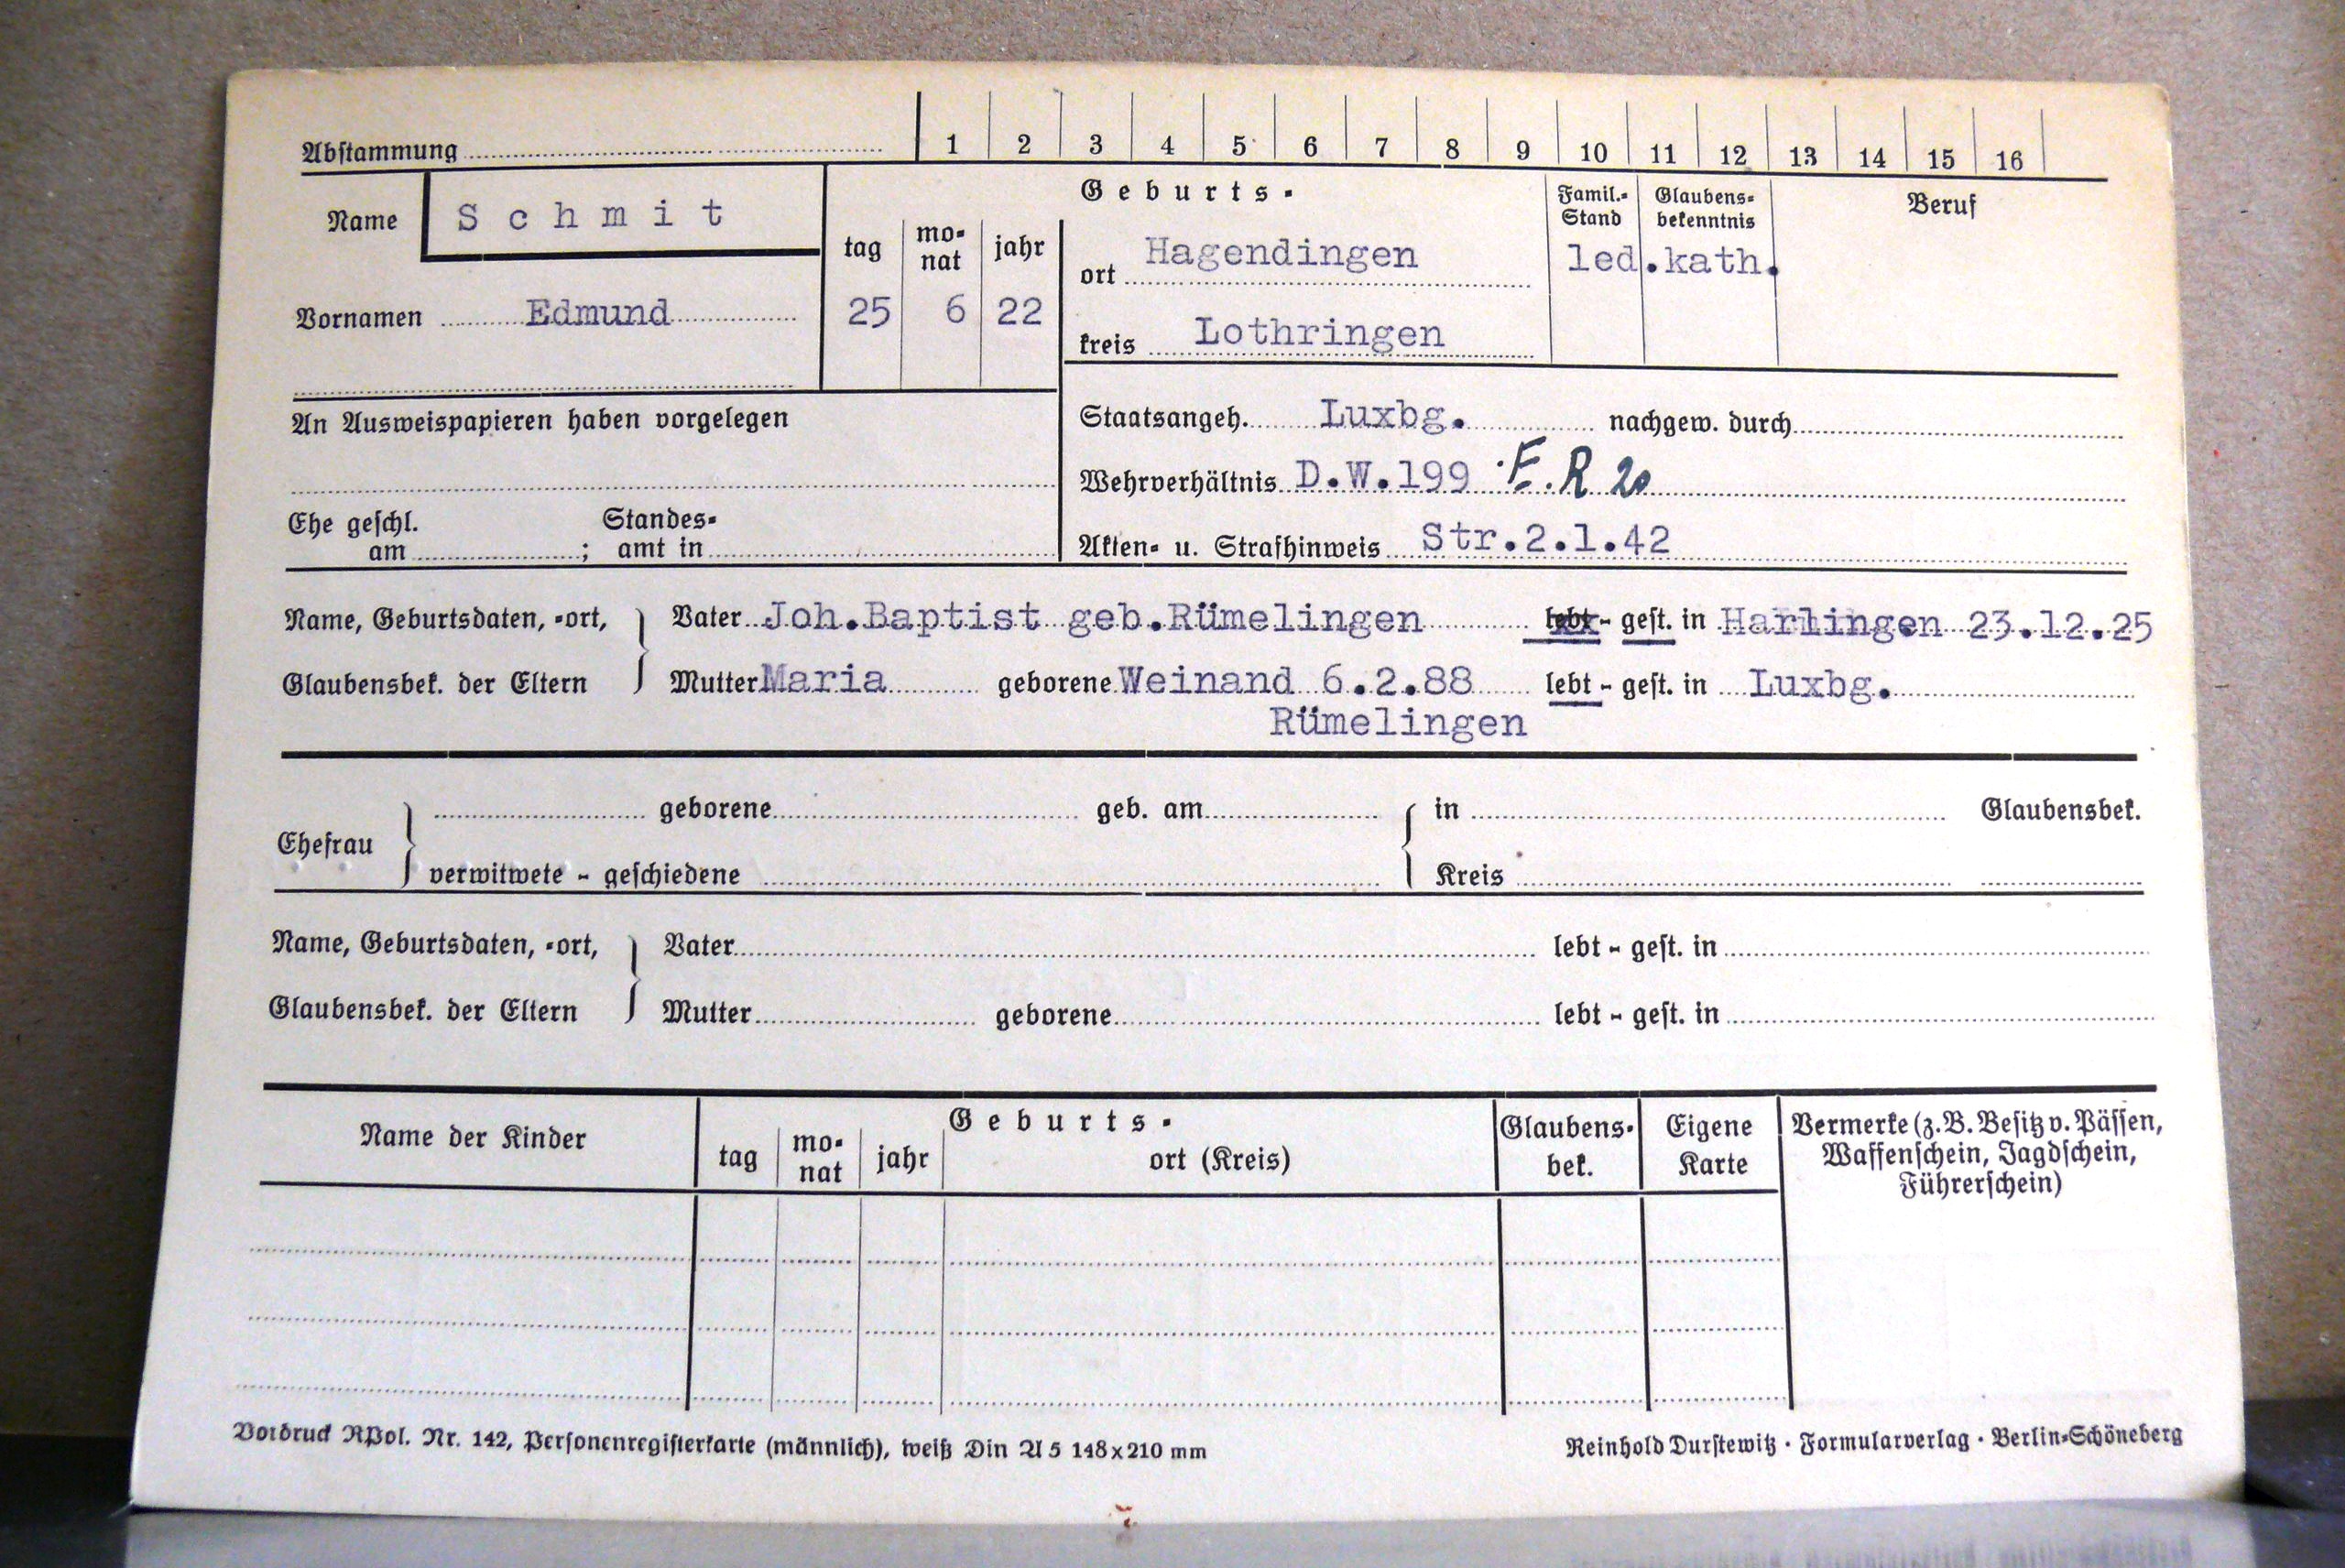 Abstammung 1 2 3 4 5 6 7 8 9 10 11 12 13 14 15 16
Name Schmit
Geburts-
Famil.-Stand Glaubens-bekenntnis Beruf
tag mo-nat jahr
ort Hagendingen led. kath.
Vornamen Edmund 25 6 22
kreis Lothringen
An Ausweispapieren haben vorgelegen
Staatsangeh. Luxbg. nachgew. durch
Wehrverhältnis D.W.199 E.R 20
Ehe geschl. am ; Standes-amt in
Akten- u. Strafhinweis Str.2.1.42
Name, Geburtsdaten, -ort, Vater Joh.Baptist geb.Rümelingen lebt - gest. in Harlingen 23.12.25
Glaubensbek. der Eltern Mutter Maria geborene Weinand 6.2.88 lebt - gest. in Luxbg.
Rümelingen
geborene geb. am in Glaubensbek.
Ehefrau
verwitwete - geschiedene Kreis
Name, Geburtsdaten, -ort, Vater lebt - gest. in
Glaubensbek. der Eltern Mutter geborene lebt - gest. in
Name der Kinder Geburts- Glaubens-bek. Eigene Karte Vermerke (z.B. Besitz v. Pässen,
tag mo-nat jahr ort (Kreis) Waffenschein, Jagdschein,
Führerschein)
Vordruck RPol. Nr. 142, Personenregisterkarte (männlich), weiß Din A 5 148x210 mm
Reinhold Durstewitz · Formularverlag · Berlin-Schöneberg